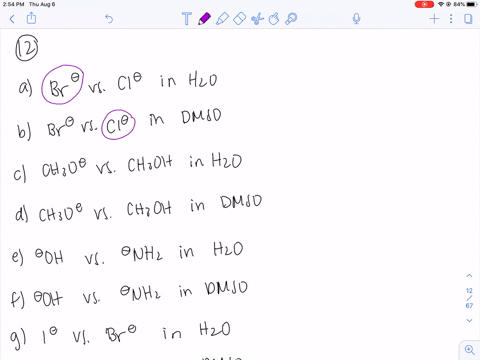 2:54 PM Thu Aug 6
84%
12
a) Br⊖ vs. Cl⊖ in H2O
b) Br⊖ vs. Cl⊖ in DMSO
c) CH3O⊖ vs. CH3OH in H2O
d) CH3O⊖ vs. CH3OH in DMSO
e) ⊖OH vs. ⊖NH2 in H2O
f) ⊖OH vs. ⊖NH2 in DMSO
g) I⊖ vs. Br⊖ in H2O
12
/
67